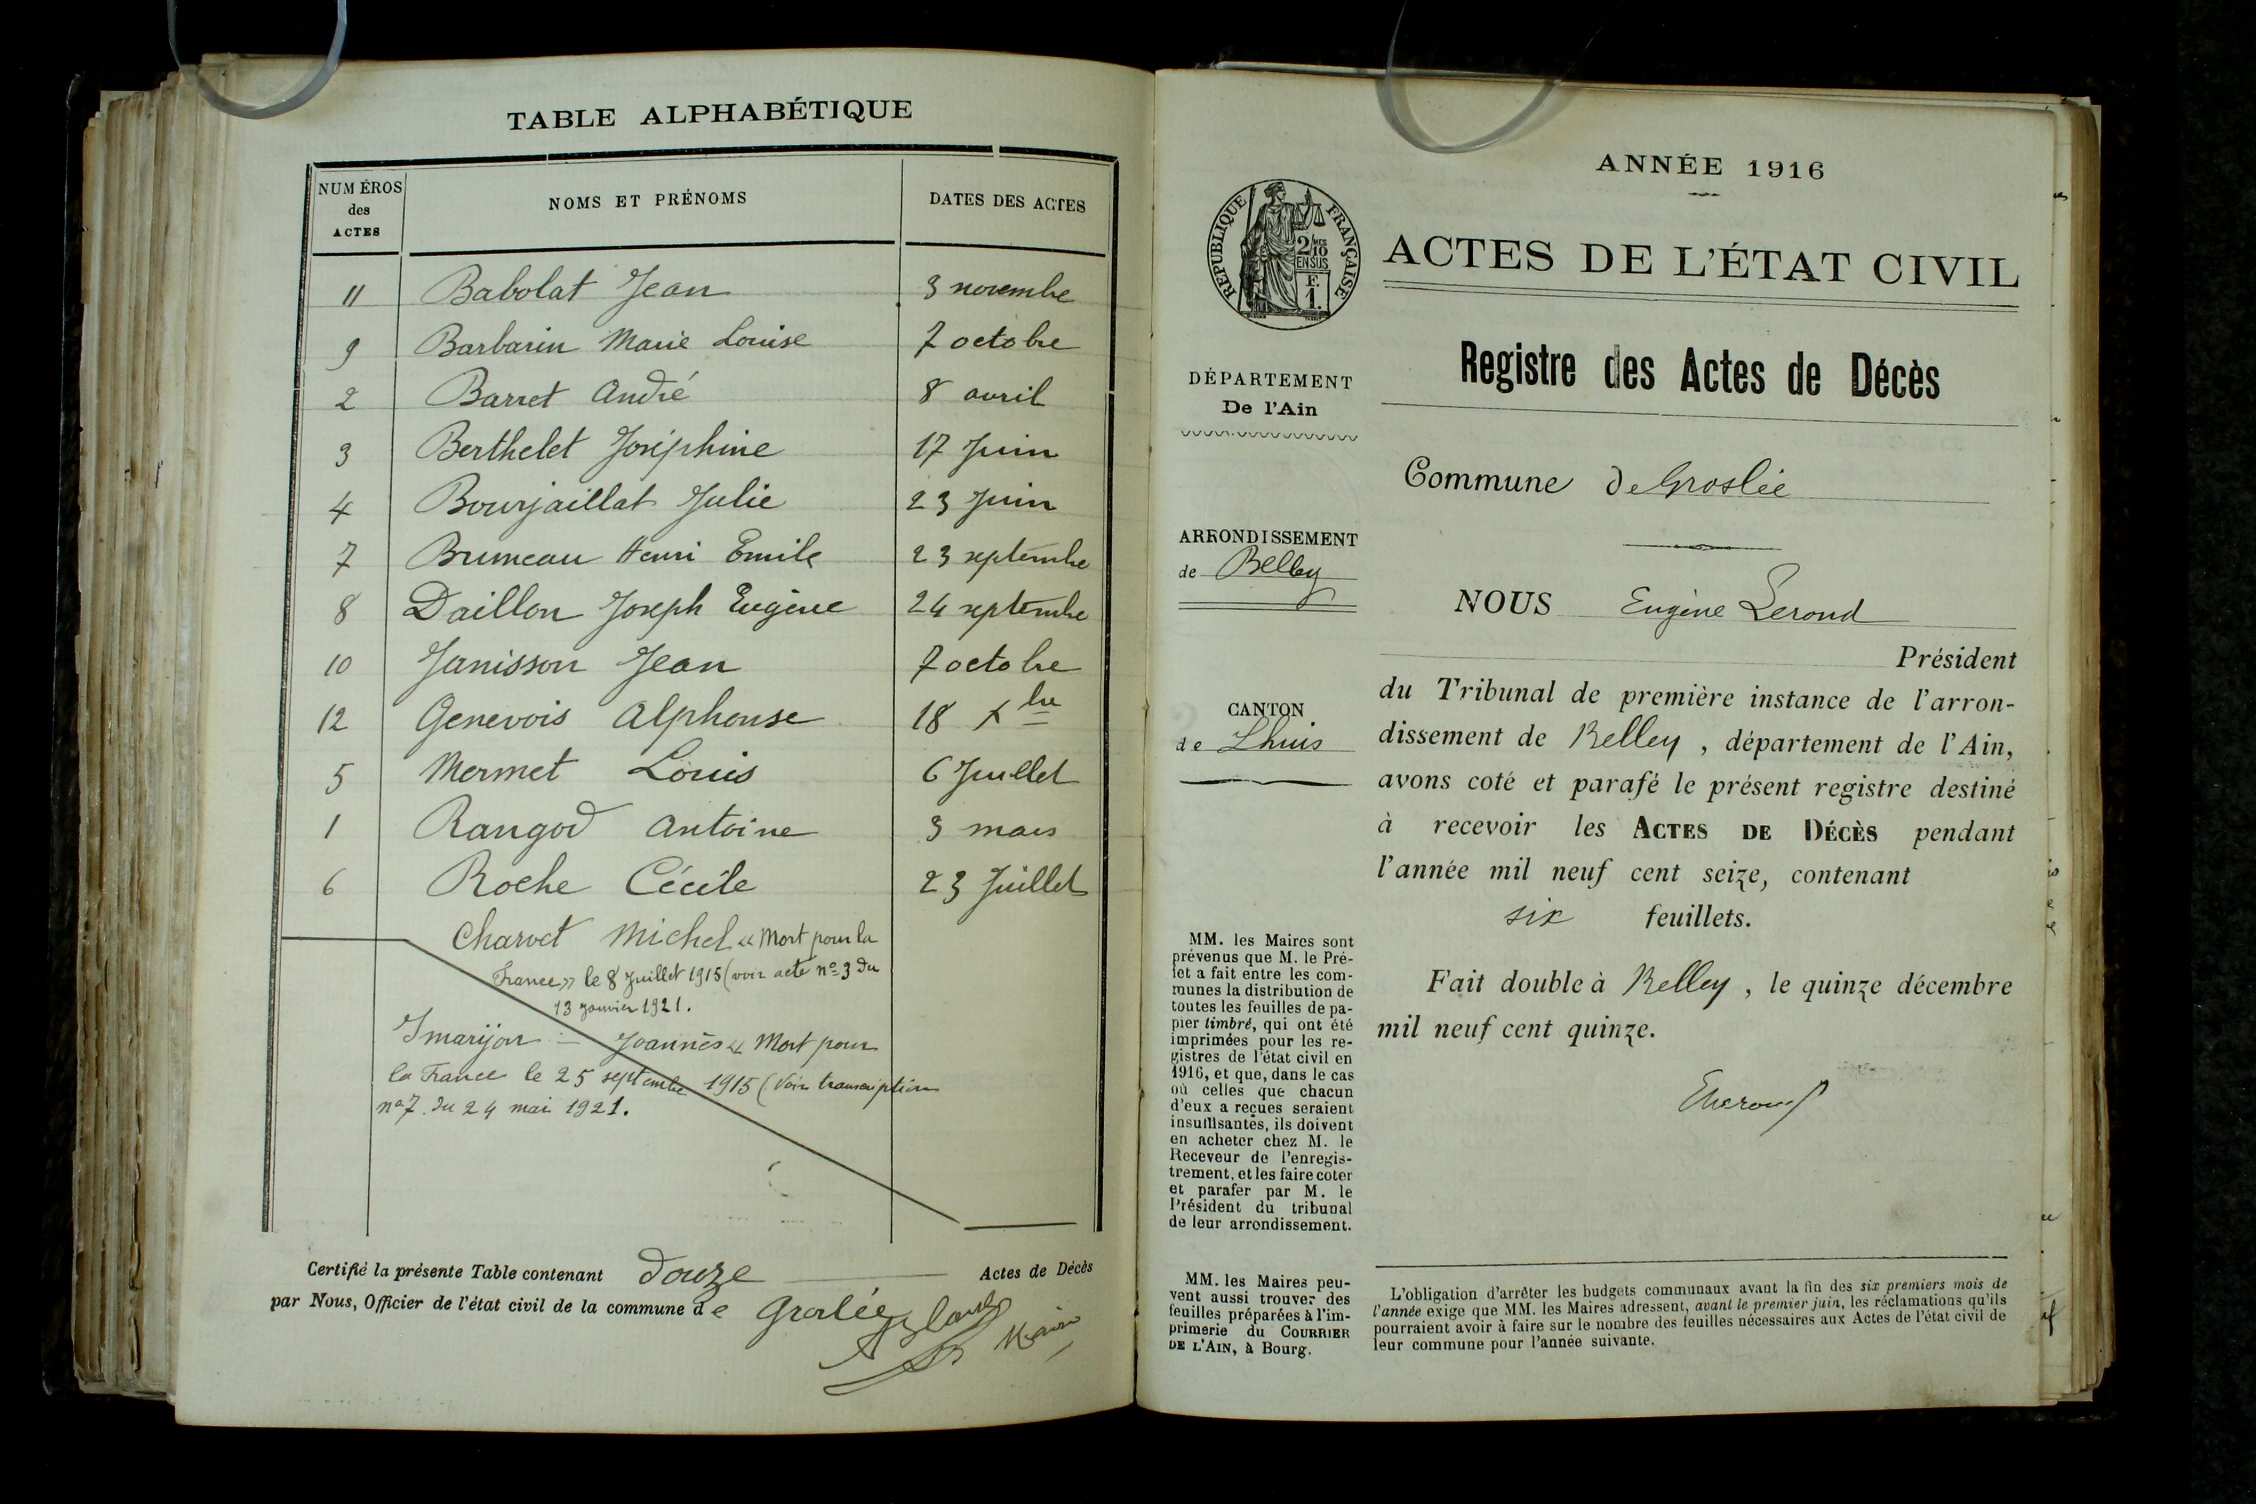 TABLE ALPHABÉTIQUE
NUMÉROS des ACTES NOMS ET PRÉNOMS DATES DES ACTES
11 Babolat Jean 3 novembre
9 Barbarin Marie Louise 7 octobre
2 Barret André 8 avril
3 Berthelet Joséphine 17 Juin
4 Bourjaillat Julie 23 Juin
7 Bruneau Henri Emile 23 septembre
8 Daillon Joseph Eugène 24 septembre
10 Janisson Jean 7 octobre
12 Genevois Alphonse 18 Xbre
5 Mermet Louis 6 Juillet
1 Rangod Antoine 3 mars
6 Roche Cécile 23 Juillet
Charvet Michel « Mort pour la
France » le 8 Juillet 1915 (voir acte nº 3 du
13 janvier 1921.
Imarijon - Joannès « Mort pour
la France le 25 septembre 1915 (Voir transcription
nº 7 du 24 mai 1921.
Certifié la présente Table contenant douze Actes de Décès
par Nous, Officier de l'état civil de la commune de Groslée
Maire
ANNÉE 1916
RÉPUBLIQUE FRANÇAISE
2/10 EN SUS
F. 1.
ACTES DE L'ÉTAT CIVIL
Registre des Actes de Décès
DÉPARTEMENT
De l'Ain
Commune de Groslée
ARRONDISSEMENT
de Belley
NOUS Eugène Lerond
Président
du Tribunal de première instance de l'arron-
dissement de Belley, département de l'Ain,
avons coté et parafé le présent registre destiné
à recevoir les ACTES DE DÉCÈS pendant
l'année mil neuf cent seize, contenant
six feuillets.
CANTON
de Lhuis
Fait double à Belley, le quinze décembre
mil neuf cent quinze.
MM. les Maires sont
prévenus que M. le Pré-
fet a fait entre les com-
munes la distribution de
toutes les feuilles de pa-
pier timbré, qui ont été
imprimées pour les re-
gistres de l'état civil en
1916, et que, dans le cas
où celles que chacun
d'eux a reçues seraient
insuffisantes, ils doivent
en acheter chez M. le
Receveur de l'enregis-
trement, et les faire coter
et parafer par M. le
Président du tribunal
de leur arrondissement.
MM. les Maires peu-
vent aussi trouver des
feuilles préparées à l'im-
primerie du COURRIER
DE L'AIN, à Bourg.
L'obligation d'arrêter les budgets communaux avant la fin des six premiers mois de
l'année exige que MM. les Maires adressent, avant le premier juin, les réclamations qu'ils
pourraient avoir à faire sur le nombre des feuilles nécessaires aux Actes de l'état civil de
leur commune pour l'année suivante.